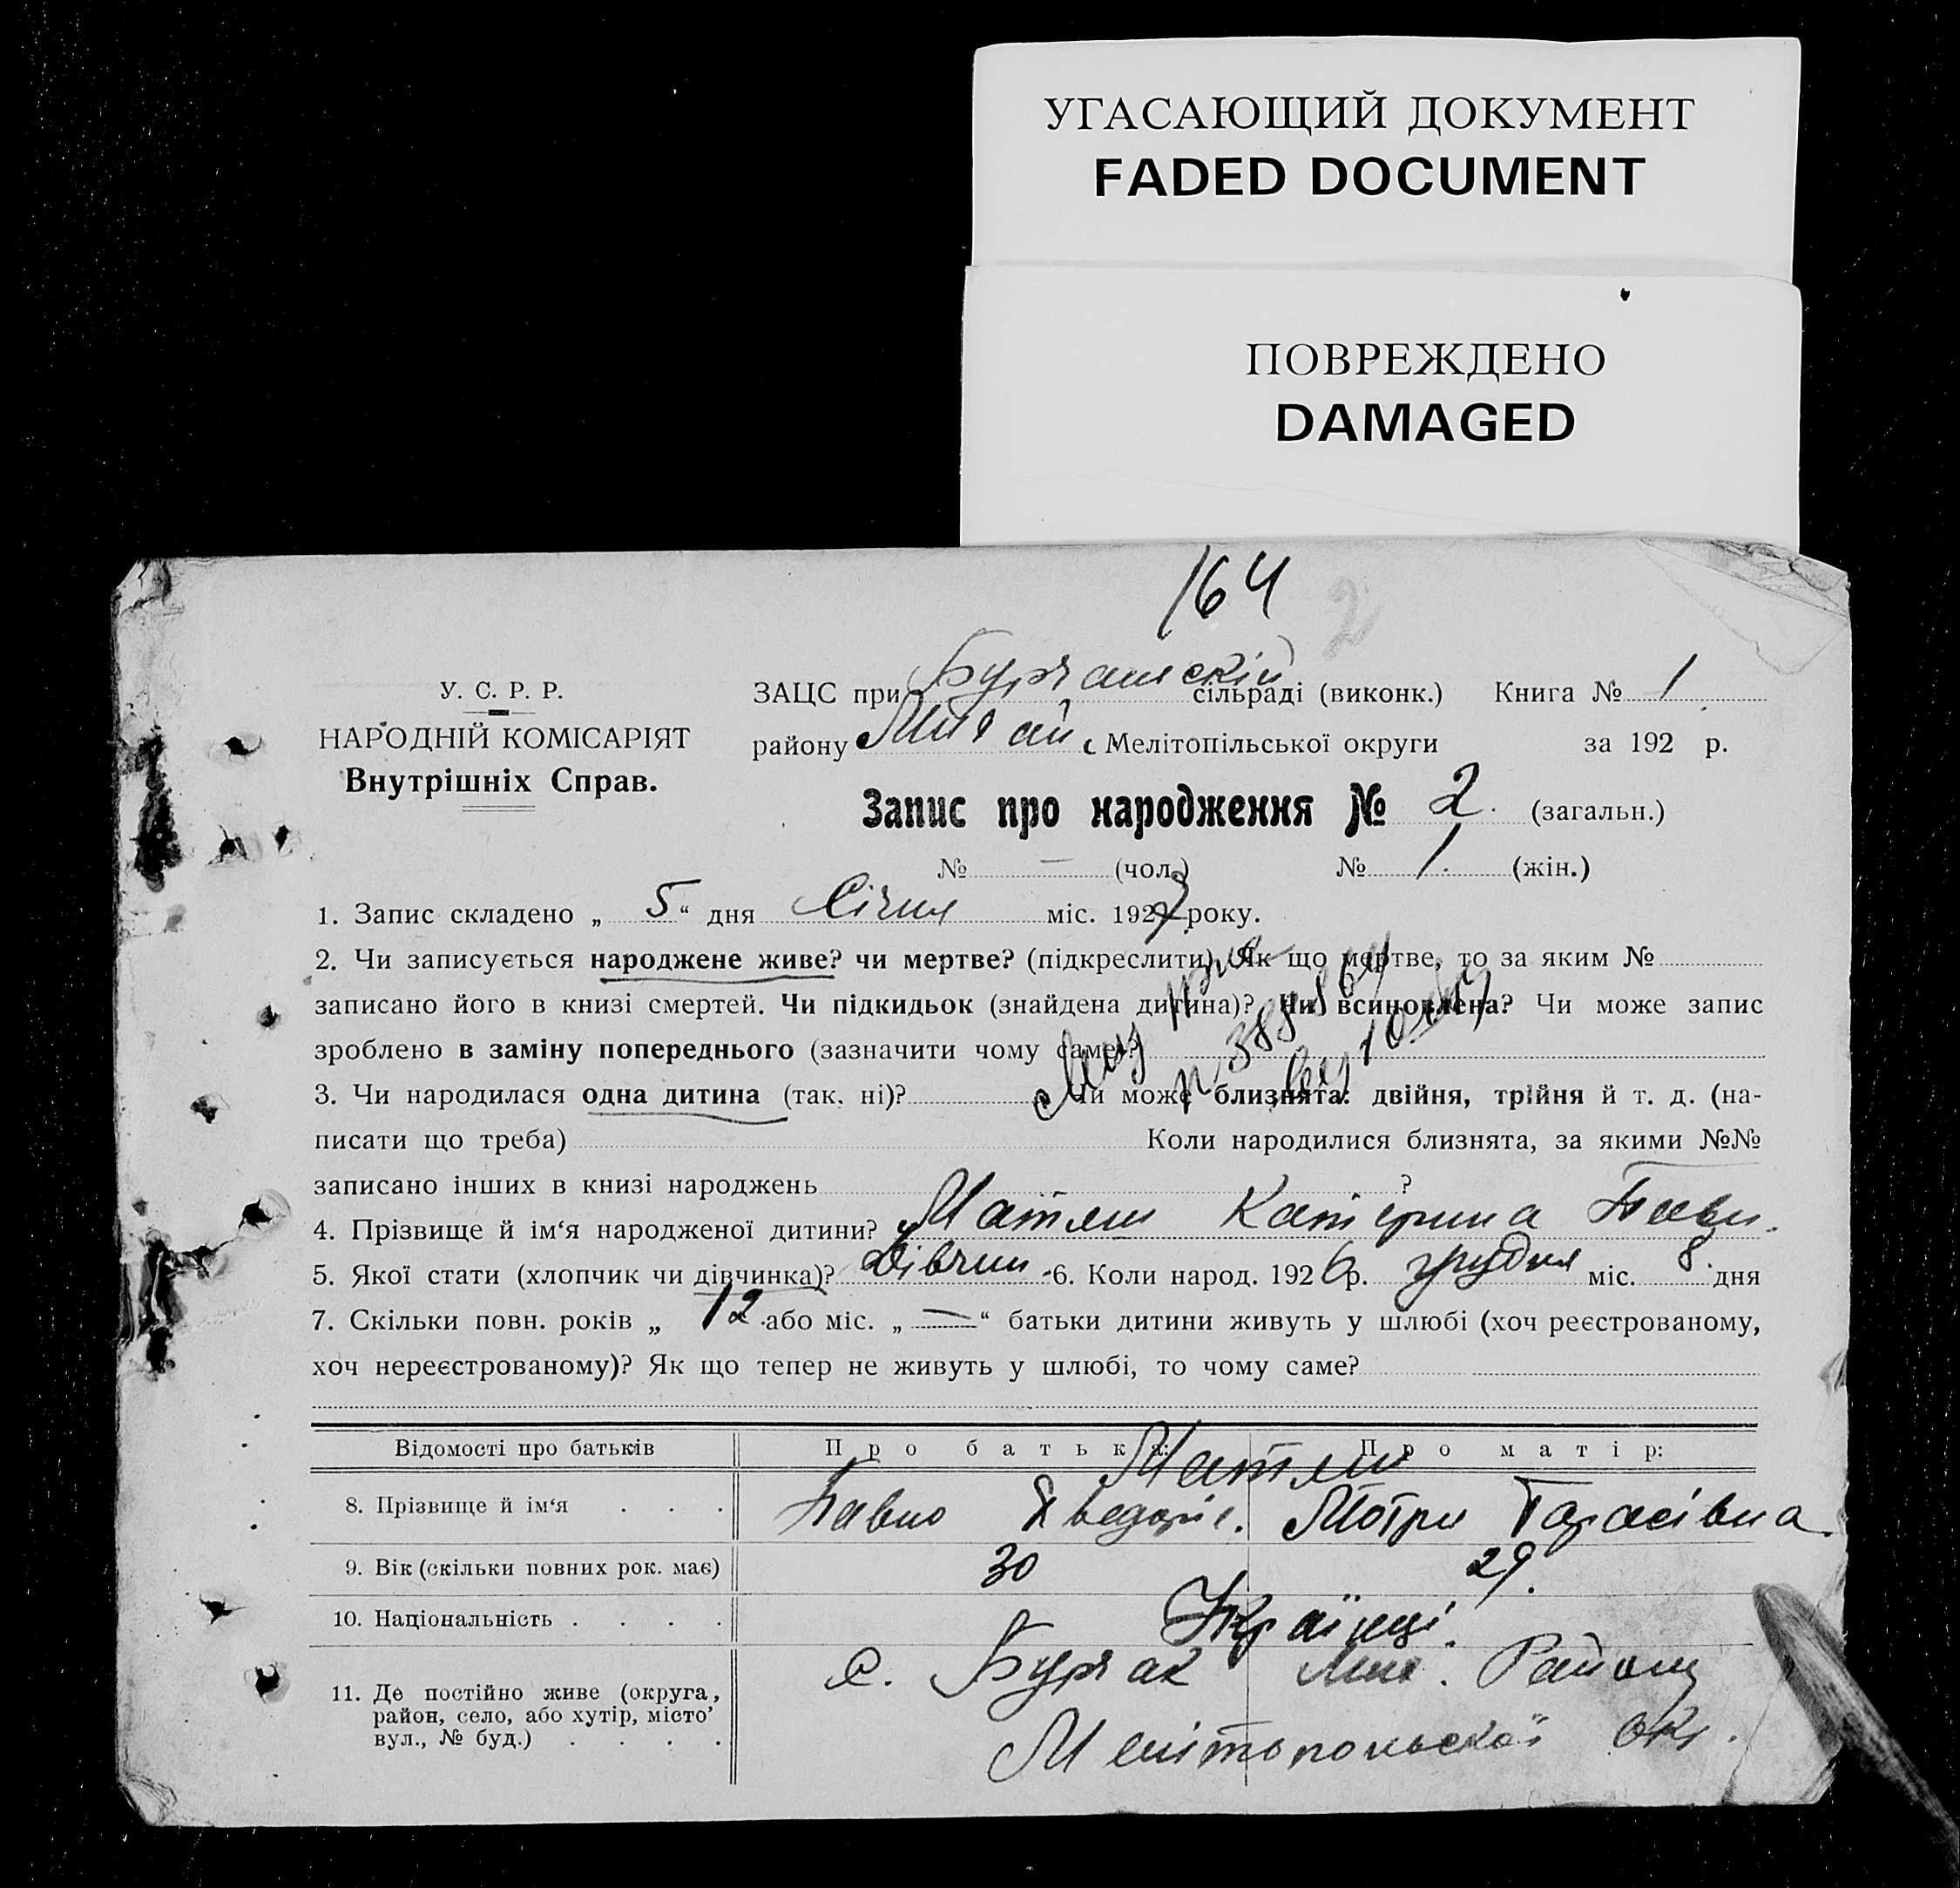 УГАСАЮЩИЙ ДОКУМЕНТ
FADED DOCUMENT
ПОВРЕЖДЕНО
DAMAGED
164
2
У. С. Р. Р.
НАРОДНІЙ КОМІСАРІЯТ
Внутрішніх Справ.
ЗАЦС при сільраді (виконк.) Книга № 1
району Мих ай Мелітопільської округи за 192 р.
Запис про народження № 2. (загальн.)
№ — (чол.) № 1. (жін.)
1. Запис складено „ 5 “ дня Січня міс. 1927 року.
2. Чи записується народжене живе? чи мертве? (підкреслити) Як що мертве, то за яким №
записано його в книзі смертей. Чи підкидьок (знайдена дитина)? Чи всиновлена? Чи може запис
зроблено в заміну попереднього (зазначити чому саме)?
3. Чи народилася одна дитина (так, ні)? Чи може близнята: двійня, трійня й т. д. (на-
писати що треба) Коли народилися близнята, за якими №№
записано інших в книзі народжень ?
4. Прізвище й ім‘я народженої дитини? Матяш Катерина Павл.
5. Якої стати (хлопчик чи дівчинка)? Дівчин. 6. Коли народ. 1926 р. грудня міс. 8 дня
7. Скільки повн. років „ 12 або міс. „ — “ батьки дитини живуть у шлюбі (хоч реєстрованому,
хоч нереєстрованому)? Як що тепер не живуть у шлюбі, то чому саме?
Відомості про батьків Про батька: Про матір:
Матяш
8. Прізвище й ім‘я . . . Павло Хведорів. Мотря Тарасівна
9. Вік (скільки повних рок. має) 30 29.
10. Національність . . . . Українці.
11. Де постійно живе (округа, район, село, або хутір, місто’ вул., № буд.) . . . . с. Бурчак Мих. Району
Мелітопольскої окр.